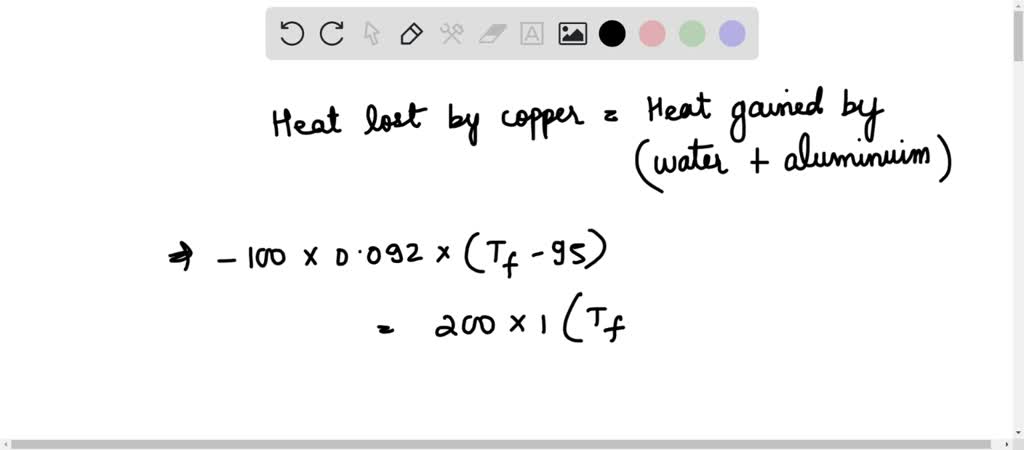 Heat lost by copper = Heat gained by
(water + aluminuim)
⇒ - 100 × 0.092 × (Tf - 95)
= 200 × 1 (Tf